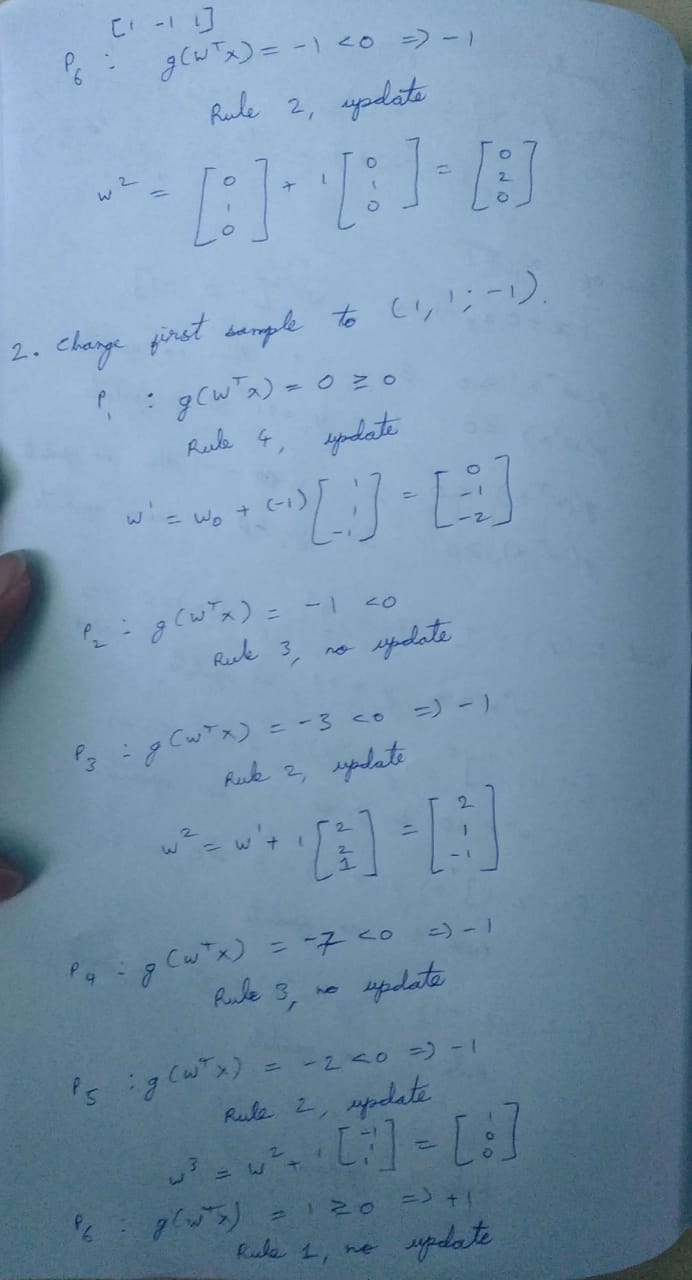 [1 -1 1]
P6 : g(wᵀx) = -1 <0 => -1
Rule 2, update
w² = [0 1 0] + 1 [0 1 0] = [0 2 0]
2. Change first sample to (1, 1; -1).
P1 : g(wᵀx) = 0 ≥ 0
Rule 4, update
w¹ = w0 + (-1) [1 1 -1] = [0 -1 -2]
P2 : g(wᵀx) = -1 <0
Rule 3, no update
P3 : g(wᵀx) = -3 <0 => -1
Rule 2, update
w² = w¹ + 1 [2 2 1] = [2 1 -1]
P4 : g(wᵀx) = -7 <0 => -1
Rule 3, no update
P5 : g(wᵀx) = -2 <0 => -1
Rule 2, update
w³ = w² + 1 [-1 -1 1] = [1 0 0]
P6 : g(wᵀx) = 1 ≥0 => +1
Rule 1, no update